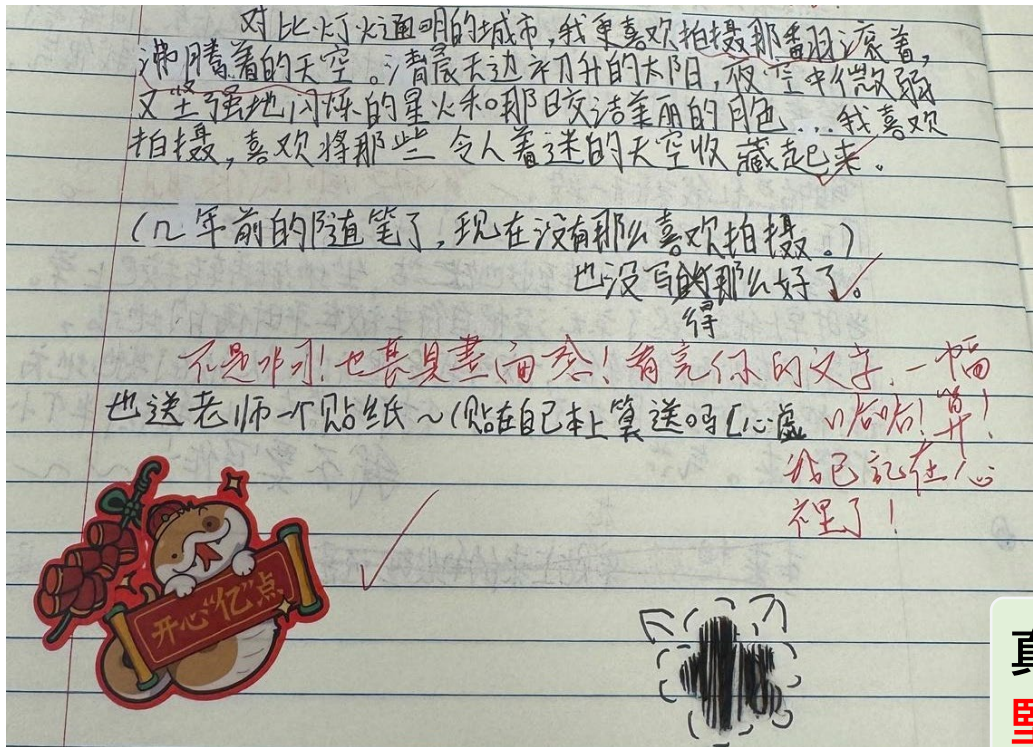 对比灯火通明的城市,我更喜欢拍摄那翻滚着,
沸腾着的天空。清晨天边初升的太阳,夜空中微弱
又坚强地闪烁的星火和那皎洁美丽的月色...我喜欢
拍摄,喜欢将那些令人着迷的天空收藏起来。
(几年前的随笔了,现在没有那么喜欢拍摄。)
也没写的那么好了。
得
不是啊!也甚具畫面感!看完你的文字,一幅
也送老师一个贴纸~(贴在自己本上算送吗[心虚
哈哈!算!
我已記在心
裡了!
开心“亿”点